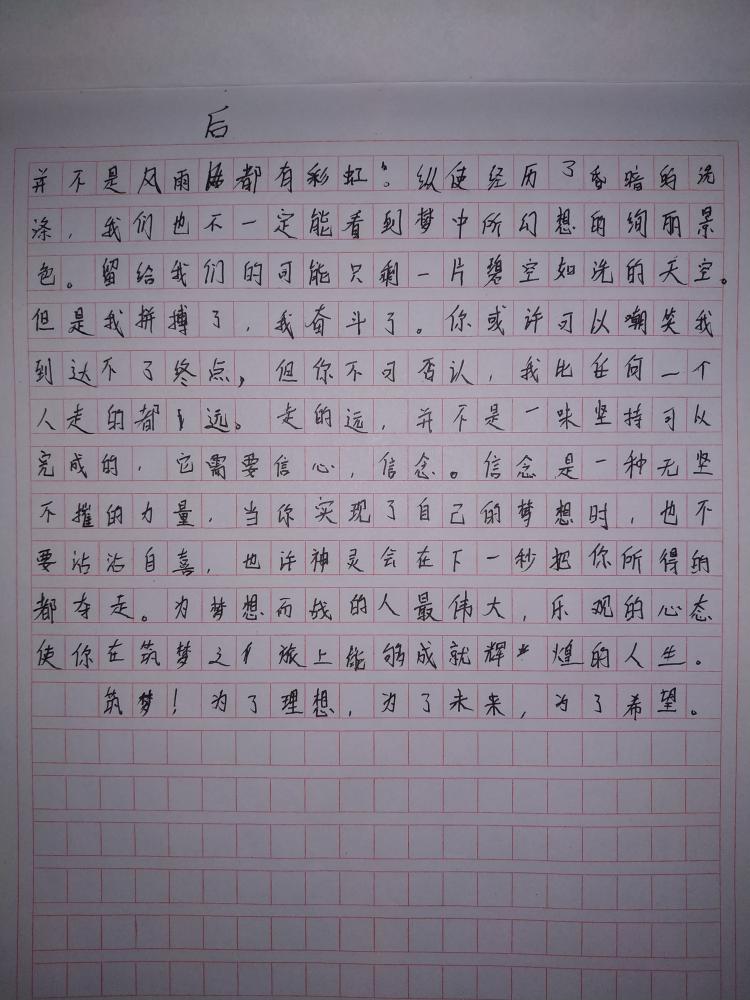 后
并不是风雨后都有彩虹。纵使经历了昏暗的洗
涤，我们也不一定能看到梦中所幻想的绚丽景
色。留给我们的可能只剩一片碧空如洗的天空。
但是我拼搏了，我奋斗了。你或许可以嘲笑我
到达不了终点，但你不可否认，我比任何一个
人走的都远。走的远，并不是一味坚持可以
完成的，它需要信心，信念。信念是一种无坚
不摧的力量，当你实现了自己的梦想时，也不
要沾沾自喜，也许神灵会在下一秒把你所得的
都夺走。为梦想而战的人最伟大，乐观的心态
使你在筑梦之旅上能够成就辉煌的人生。
筑梦！为了理想，为了未来，为了希望。